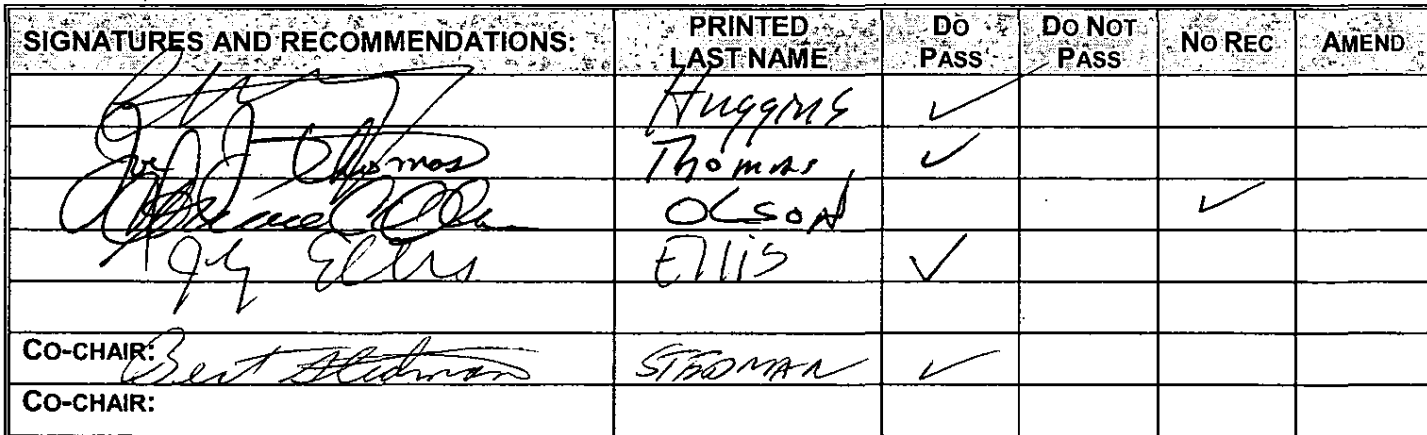 SIGNATURES AND RECOMMENDATIONS: PRINTED LAST NAME DO PASS DO NOT PASS NO REC AMEND
Huggins ✓
Thomas Thomas ✓
OLSON ✓
Ellis Ellis ✓
CO-CHAIR: Bert Stedman STEDMAN ✓
CO-CHAIR: